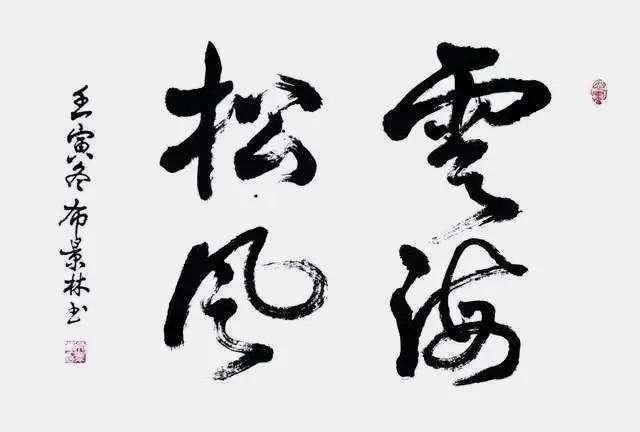 雲海
松风
壬寅冬布景林书